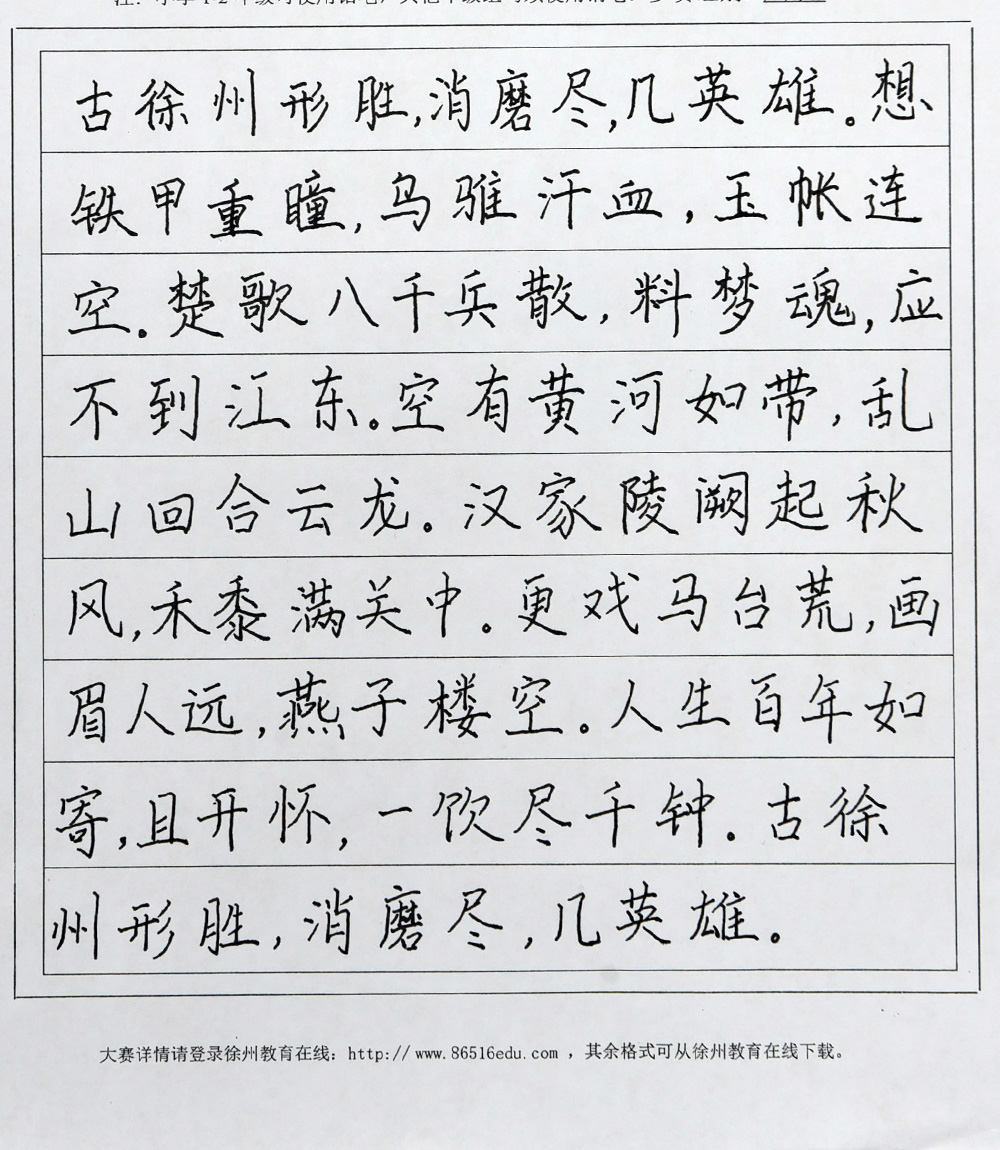 古徐州形胜,消磨尽,几英雄。想
铁甲重瞳,乌骓汗血,玉帐连
空。楚歌八千兵散,料梦魂,应
不到江东。空有黄河如带,乱
山回合云龙。汉家陵阙起秋
风,禾黍满关中。更戏马台荒,画
眉人远,燕子楼空。人生百年如
寄,且开怀,一饮尽千钟。古徐
州形胜,消磨尽,几英雄。
大赛详情请登录徐州教育在线：http://www.86516edu.com，其余格式可从徐州教育在线下载。